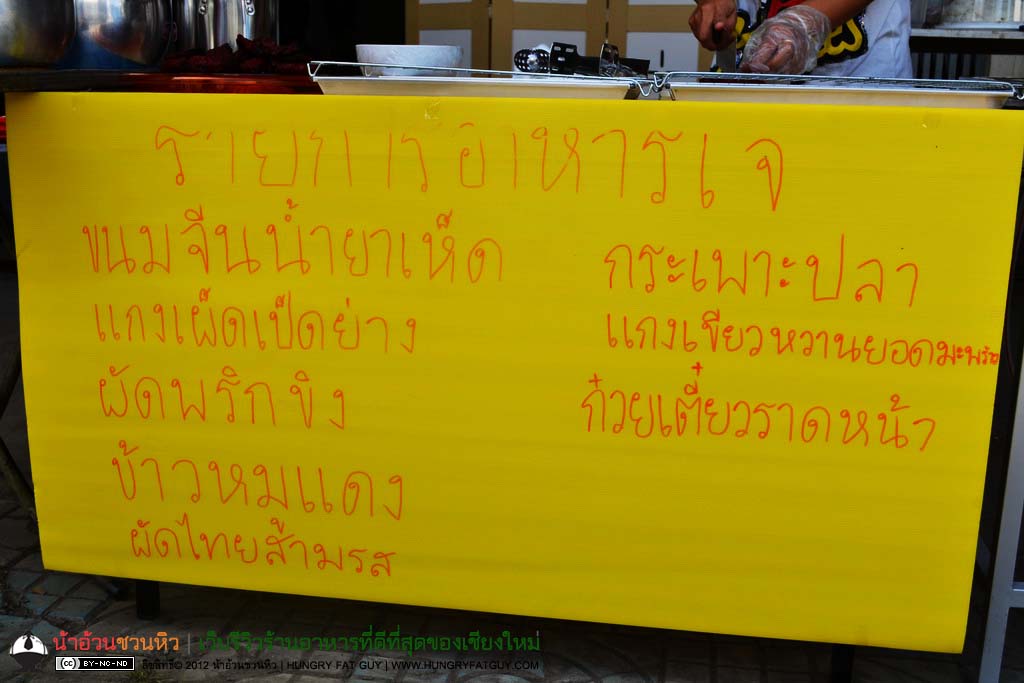 รายการอาหารเจ
ขนมจีนน้ำยาเห็ด
แกงเผ็ดเป็ดย่าง
ผัดพริกขิง
ข้าวหมูแดง
ผัดไทยส้ามรส
กระเพาะปลา
แกงเขียวหวานยอดมะพร้าว
ก๋วยเตี๋ยวราดหน้า
น้าอ้วนชวนหิว | เว็บรีวิวร้านอาหารที่ดีที่สุดของเชียงใหม่
CC BY-NC-ND ลิขสิทธิ์© 2012 น้าอ้วนชวนหิว | HUNGRY FAT GUY | WWW.HUNGRYFATGUY.COM